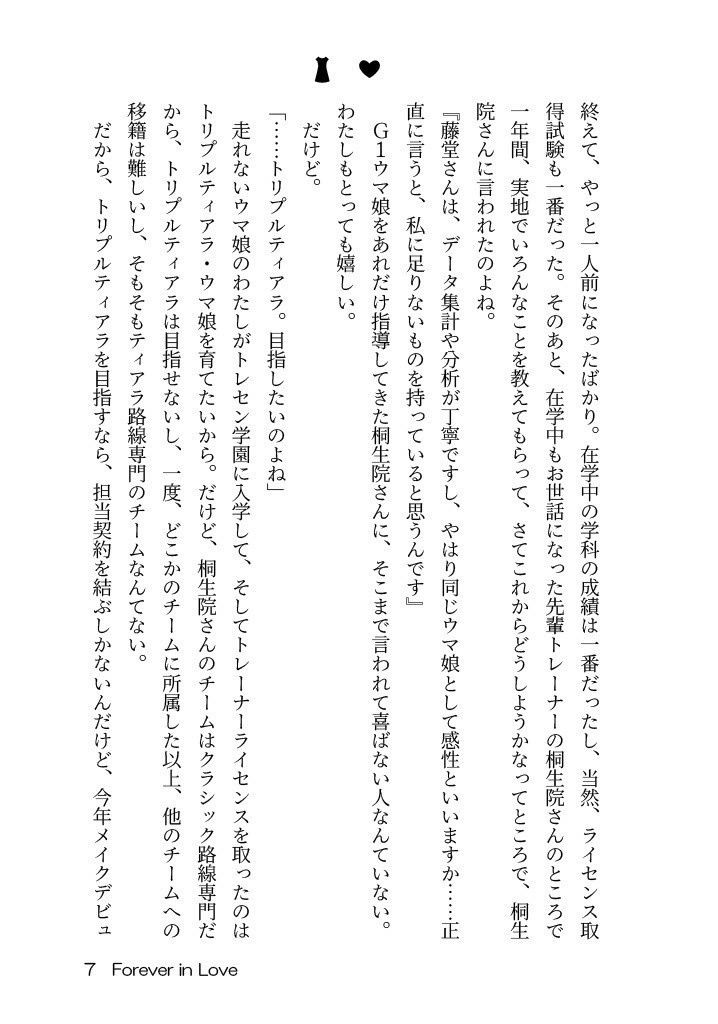 終えて、やっと一人前になったばかり。在学中の学科の成績は一番だったし、当然、ライセンス取
得試験も一番だった。そのあと、在学中もお世話になった先輩トレーナーの桐生院さんのところで
一年間、実地でいろんなことを教えてもらって、さてこれからどうしようかなってところで、桐生
院さんに言われたのよね。
『藤堂さんは、データ集計や分析が丁寧ですし、やはり同じウマ娘として感性といいますか……正
直に言うと、私に足りないものを持っていると思うんです』
Ｇ１ウマ娘をあれだけ指導してきた桐生院さんに、そこまで言われて喜ばない人なんていない。
わたしもとっても嬉しい。
だけど。
「……トリプルティアラ。目指したいのよね」
走れないウマ娘のわたしがトレセン学園に入学して、そしてトレーナーライセンスを取ったのは
トリプルティアラ・ウマ娘を育てたいから。だけど、桐生院さんのチームはクラシック路線専門だ
から、トリプルティアラは目指せないし、一度、どこかのチームに所属した以上、他のチームへの
移籍は難しいし、そもそもティアラ路線専門のチームなんてない。
だから、トリプルティアラを目指すなら、担当契約を結ぶしかないんだけど、今年メイクデビュ
7 Forever in Love